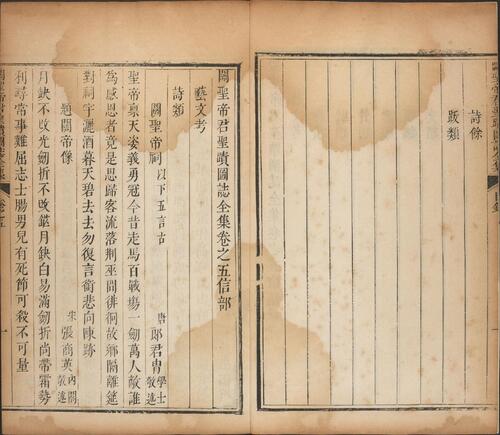 詩餘
贒類
關聖帝君聖蹟圖誌全集卷之五信部
藝文考
詩類
關聖帝祠 以下五言古 唐 郎君冑 學士 敬述
聖帝稟天姿義勇冠今昔走馬百戰場一劍萬人敵誰
爲感恩者竟是思歸客流落荆巫間徘徊故鄉隔離筵
對祠宇灑酒暮天碧去去勿復言銜悲向陳跡
題關帝像 宋 張商英 內閣 敬述
月缺不改光劍折不改鋩月缺白易滿劍折尚帶霜勢
利尋常事難屈志士腸男兒有死節可殺不可量